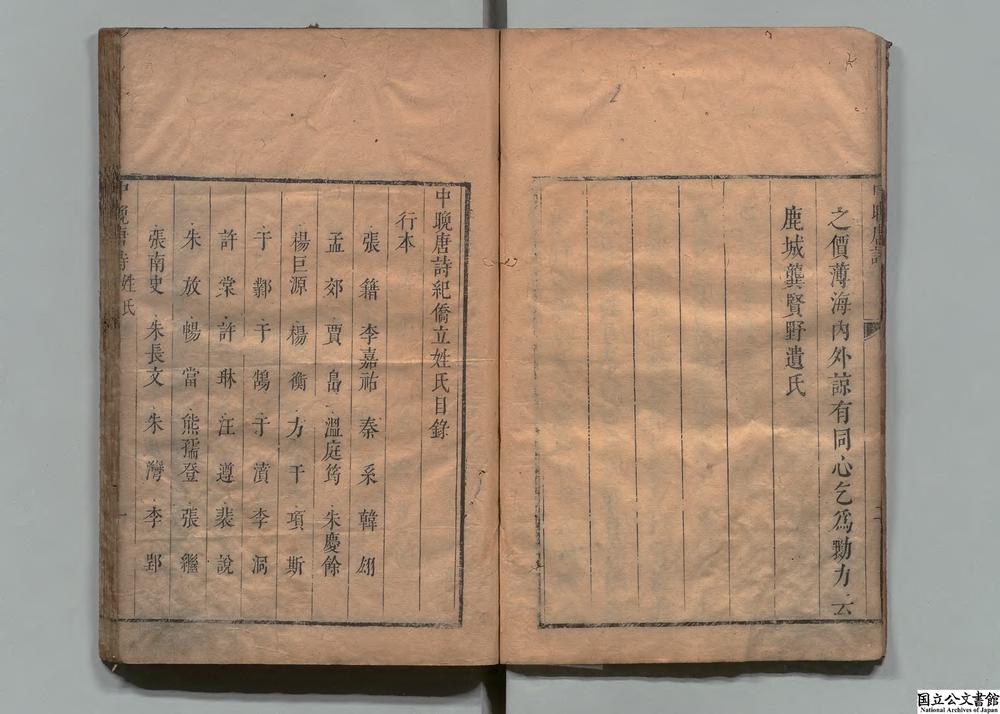 之價薄海內外諒有同心乞爲勷力云
鹿城龔賢野遺氏
中晚唐詩紀僑立姓氏目錄
行本
張籍 李嘉祐 秦系 韓翃
孟郊 賈島 溫庭筠 朱慶餘
楊巨源 楊衡 方干 項斯
于鄴 于鵠 于濆 李洞
許棠 許琳 汪遵 裴說
朱放 暢當 熊孺登 張繼
張南史 朱長文 朱灣 李郢
中晚唐詩 姓氏 一
国立公文書館
National Archives of Japan